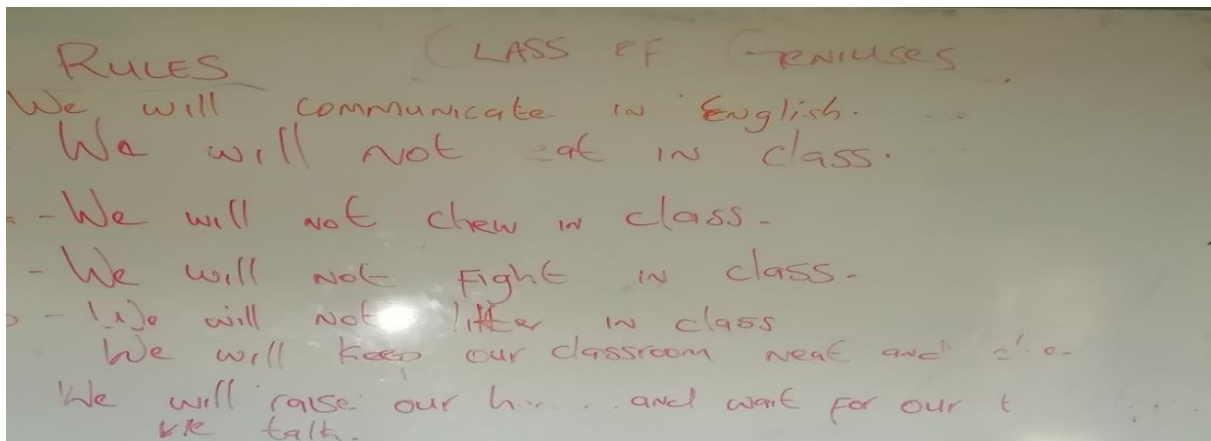 RULES CLASS OF GENIUSES
We will communicate in English.
We will not eat in class.
- We will not chew in class.
- We will not fight in class.
- We will not litter in class
We will keep our classroom neat and
We will raise our and wait for our
talk.